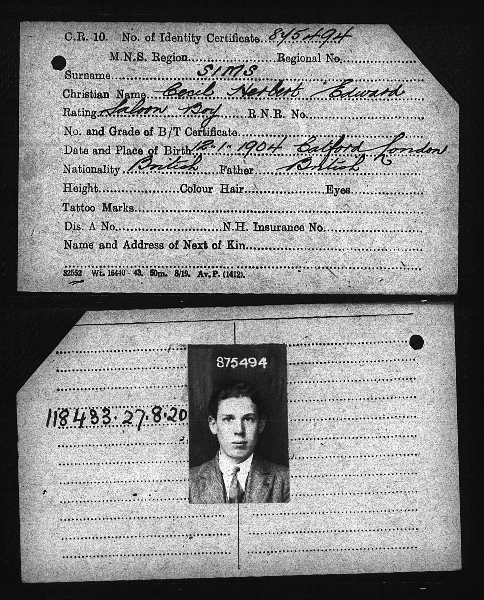 C.R. 10. No. of Identity Certificate 875494
M.N.S. Region Regional No.
Surname SIMS
Christian Name Cecil Herbert Edward
Rating Saloon Boy R.N.R. No.
No. and Grade of B/T Certificate
Date and Place of Birth 12.1.1904 Catford London
Nationality British Father British
Height Colour Hair Eyes
Tattoo Marks
Dis. A No. N.H. Insurance No.
Name and Address of Next of Kin
32552 Wt. 16440 43. 50m. 8/19. Av. P. (1412).
875494
118433. 27.8.20